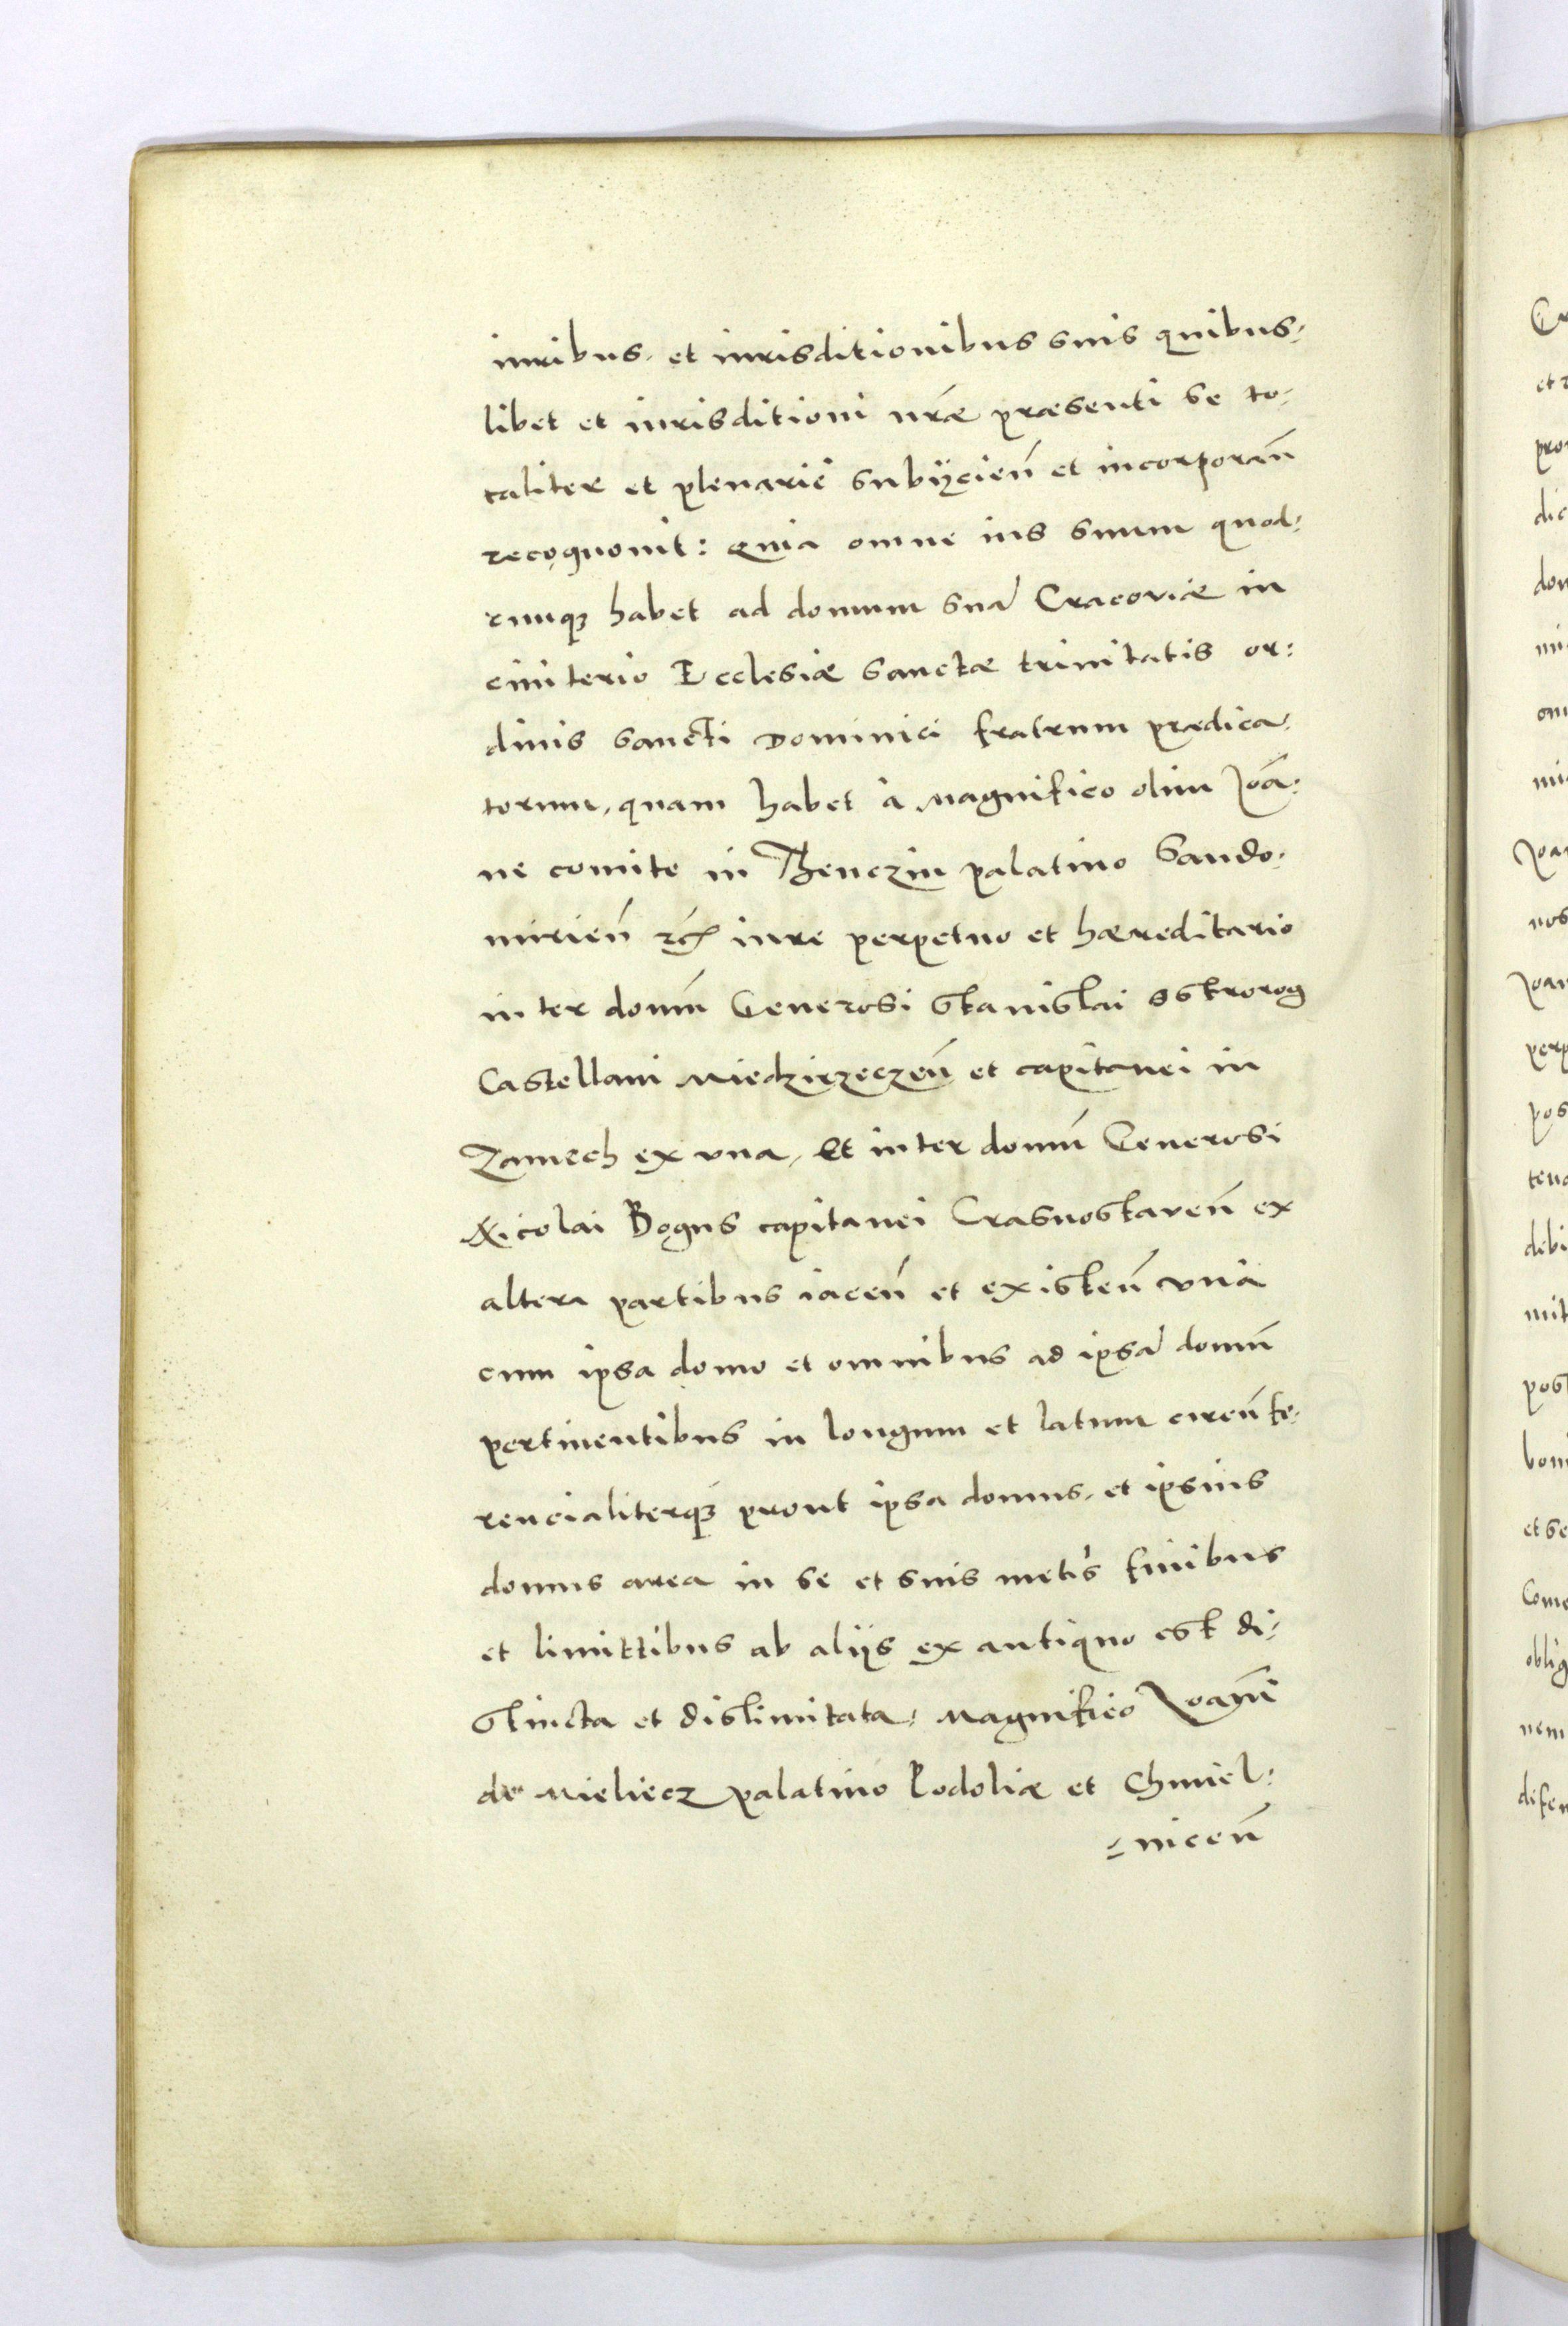 iuribus, et iurisditionibus suis quibus-
libet et iurisditioni nrae praesenti se to-
taliter et plenarie subijcien̄ et incorporan̄
recognovit: quia omne ius suum quod-
cunqꝫ habet ad domum suā Cracoviae in
cimiterio Ecclesiae sanctae trinitatis or:
dinis sancti Dominici fratrum praedica-
torum, quam habet à Magnifico olim Joā:
ne comite in Thenczin palatino Sando-
mirien̄ etc̄ iure perpetuo et haereditario
inter domū Generosi Stanislai Ostrorog
Castellani Miedzirzeczen̄ et capitanei in
Zamech ex una, Et inter domū Generosi
Nicolai Bogus capitanei Crasnostaven̄ ex
altera partibus iacen̄ et existen̄ unà
cum ipsa domo et omnibus ad ipsā domū
pertinentibus in longum et latum circūfe-
rencialiterqꝫ prout ipsa domus, et ipsius
domus area in se et suis metis finibus
et limittibus ab alijs ex antiquo est di-
stincta et dislimitata: Magnifico Joanī
de Mieliecz palatino Podoliae et Chmiel:
=nicen̄
Joan
nos
perp
pos
post
et se
oblig
nem